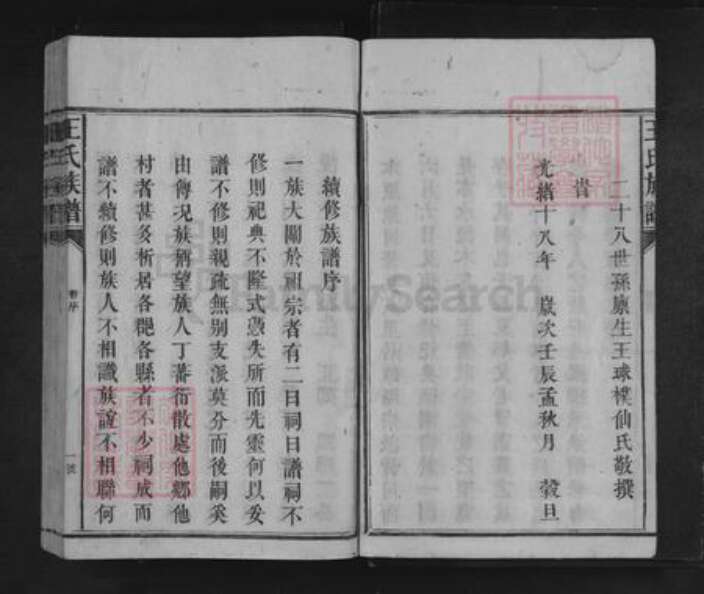 王氏族譜
二十八世孫廪生王球樸仙氏敬撰
旹
光緒十八年 歲次壬辰孟秋月 穀旦
續修族譜序
一族大關於祖宗者有二曰祠曰譜祠不
修則祀典不隆式憑失所而先靈何以妥
譜不修則親疏無别支派莫分而後嗣奚
由傳况族屑望族人丁蕃衍散處他鄉他
村者甚多析居各郡各縣者不少祠成而
譜不續修則族人不相識族誼不相聯何
王氏族譜
序
一號
FamilySearch